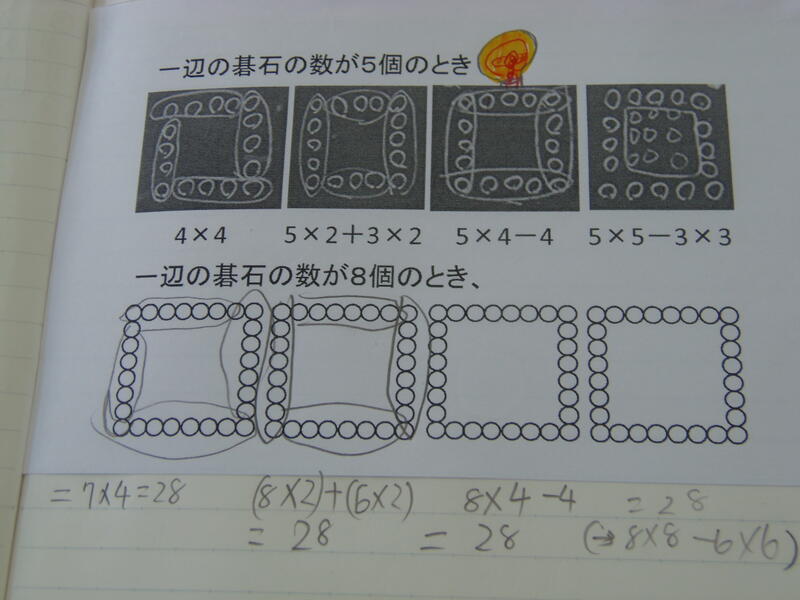 一辺の碁石の数が5個のとき
4×4 5×2+3×2 5×4−4 5×5−3×3
一辺の碁石の数が8個のとき、
=7×4=28 (8×2)+(6×2) 8×4−4 =28
=28 =28 (→8×8−6×6)